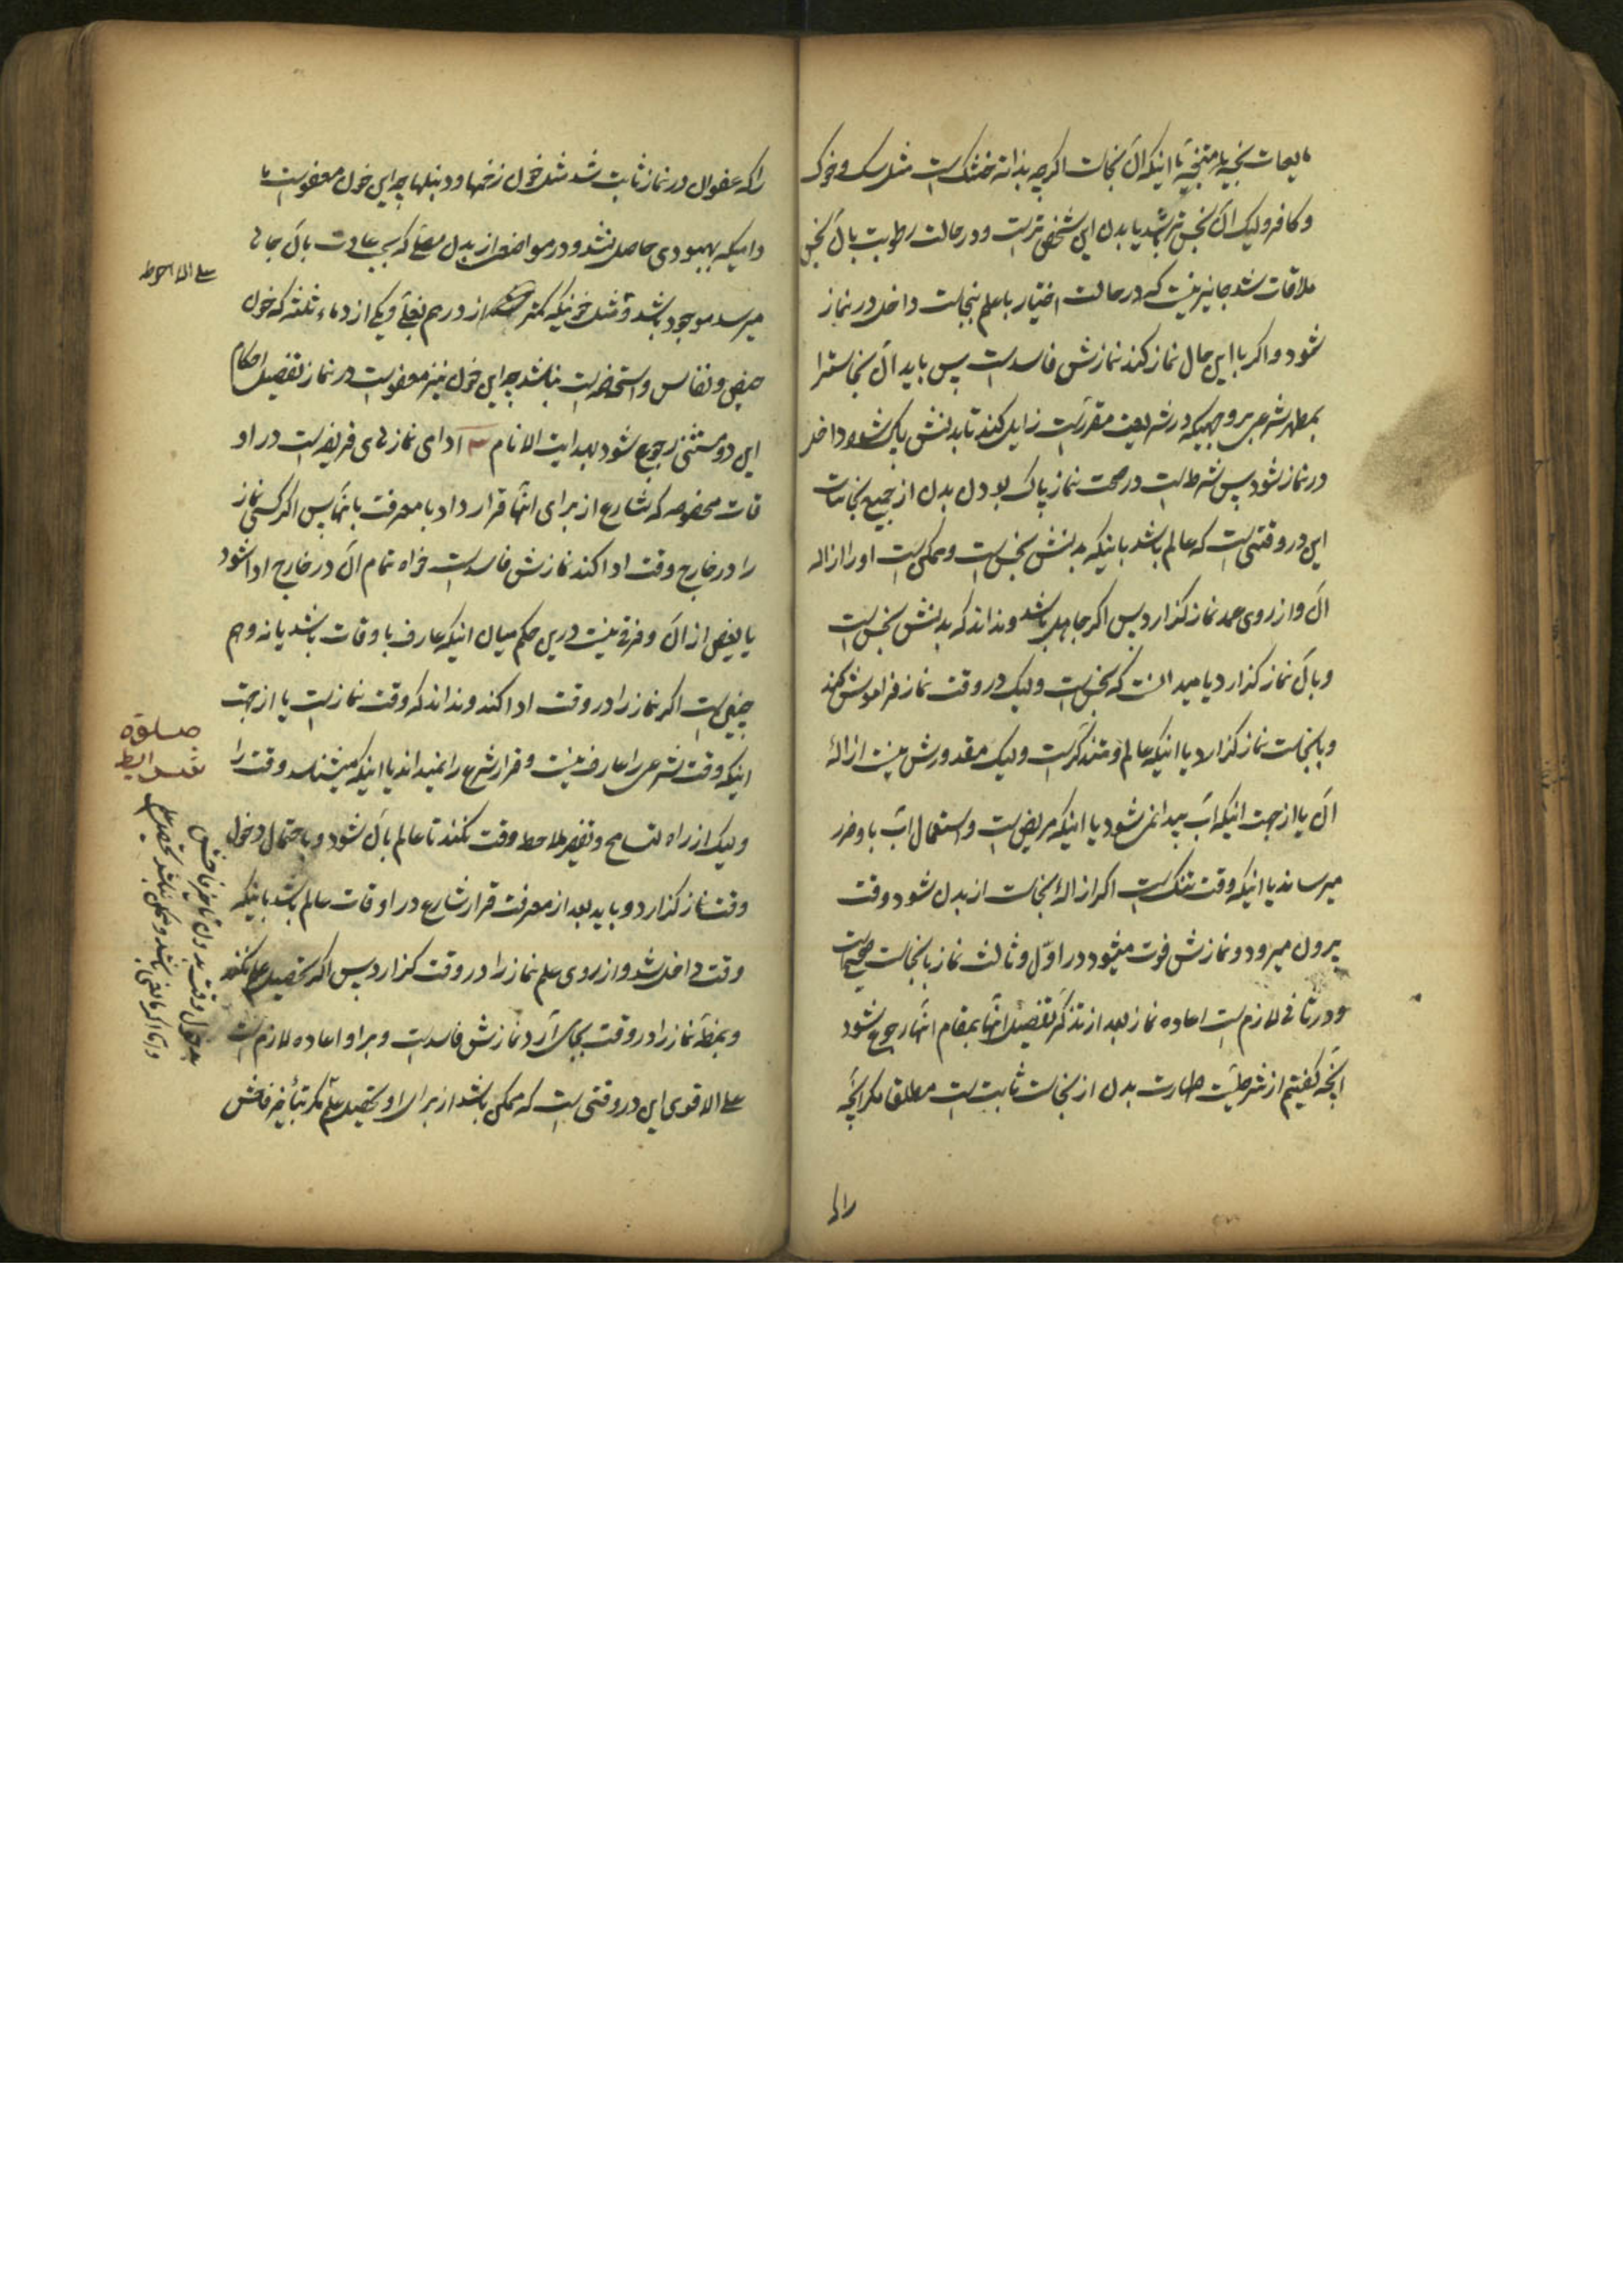 مایعات نجسه یا متنجسه یا اینکه آن نجاست اگرچه بذاته خشک است مثل سک و خوک
و کافر و لیک آن نجس تر باشد یا بدن این شخص تر است و در حالت رطوبت بآن نجس
ملاقات شد جایز نیست که در حالت اختیار با علم بنجاست داخل در نماز
شود و اکر با این حال نماز کند نمازش فاسد است پس باید آن نجاسترا
بمطهر شرعی بر وجهیکه در شریعت مقرر است زایل کند تا بدنش پاک شود و داخل
در نماز شود پس شرط است در صحت نماز پاک بودن بدن از جمیع نجاسات
این در وقتی است که عالم باشد باینکه بدنش نجس است و ممکن است او را ازاله
آن و از روی عمد نماز کذارد پس اکر جاهل باشد و نداند که بدنش نجس است
و بآن نماز کذارد یا میدانست که نجس است و لیک در وقت نماز فراموش کند
و با نجاست نماز کذارد یا اینکه عالم و متذکر است و لیک مقدورش نیست ازالهٔ
آن یا از جهت اینکه آب پیدا نمی شود یا اینکه مریض است و استعمال آب باو ضرر
میرساند یا اینکه وقت تنک است اکر ازالهٔ نجاست از بدن شود وقت
بیرون میرود و نمازش فوت میشود در اوّل و ثالث نماز با نجاست صحیح است
و در ثانی لازم است اعاده نماز بعد از تذکر تفصیل آنها بمقام آنها رجوع شود
آنچه کفتیم از شرطیت طهارت بدن از نجاست ثابت است مطلقا مکر آنچه
را که عفو آن در نماز ثابت شد مثل خون زخمها و دنبلها چه این خون معفو است ما
دامیکه بهبودی حاصل نشد و در مواضع از بدن مصلّی که بحسب عادت بآن جا
میرسد موجود باشد و مثل خونیکه کمتر از درهم بغلی و یکی از دماء ثلثه که خون
حیض و نفاس و استحاضه است نباشد چه این خون نیز معفو است در نماز تفصیل احکام
این دو مستثنی رجوع شود بهدایت الانام ۳ ادای نمازهای فریضه است در او
قات مخصوصه که شارع از برای آنها قرار داد با معرفت بآنها پس اکر کسی نماز
را در خارج وقت ادا کند نمازش فاسد است خواه تمام آن در خارج ادا شود
یا بعض از آن و فرقی نیست درین حکم میان اینکه عارف باوقات باشد یا نه و هم
چنین است اکر نماز را در وقت ادا کند و نداند که وقت نماز است یا از جهت
اینکه وقت شرعی را عارف نیست و قرار شرع را نمیداند یا اینکه میشناسد وقت را
و لیک از راه تسامح و تقصیر ملاحظه وقت نکند تا عالم بآن شود و باحتمال دخول
وقت نماز کذارد و باید بعد از معرفت قرار شارع در اوقات عالم باشد باینکه
وقت داخل شد و از روی علم نماز را در وقت کذارد پس اکر تحصیل علم نکند
و بمظنه نماز را در وقت بجای آرد نمازش فاسد است و بر او اعاده لازم است
علی الاقوی این در وقتی است که ممکن باشد از برای او تحصیل علم مکر بتأخیر فاحش
علی الاحوط
صلوة
شرایط
بدخول وقت بدون تاخیر فاحش
و اما اکر مانعی باشد و ممکن نباشد تحصیل علم